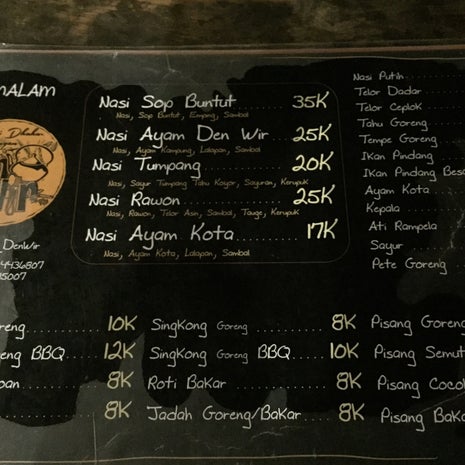 MALAM
DenWir
4436807
5007
Nasi Sop Buntut 35K
Nasi, Sop Buntut, Emping, Sambal
Nasi Ayam Den Wir 25K
Nasi, Ayam Kampung, Lalapan, Sambal
Nasi Tumpang 20K
Nasi, Sayur Tumpang Tahu Koyor, Sayuran, Kerupuk
Nasi Rawon 25K
Nasi, Rawon, Telor Asin, Sambal, Tauge, Kerupuk
Nasi Ayam Kota 17K
Nasi, Ayam Kota, Lalapan, Sambal
Nasi Putih
Telor Dadar
Telor Ceplok
Tahu Goreng
Tempe Goreng
Ikan Pindang
Ikan Pindang Besa
Ayam Kota
Kepala
Ati Rampela
Sayur
Pete Goreng
reng 10K
eng BBQ 12K
oan 8K
8K
Singkong Goreng 8K
Singkong Goreng BBQ 10K
Roti Bakar 8K
Jadah Goreng/Bakar 8K
Pisang Goreng
Pisang Semut
Pisang Cocol
Pisang Baka